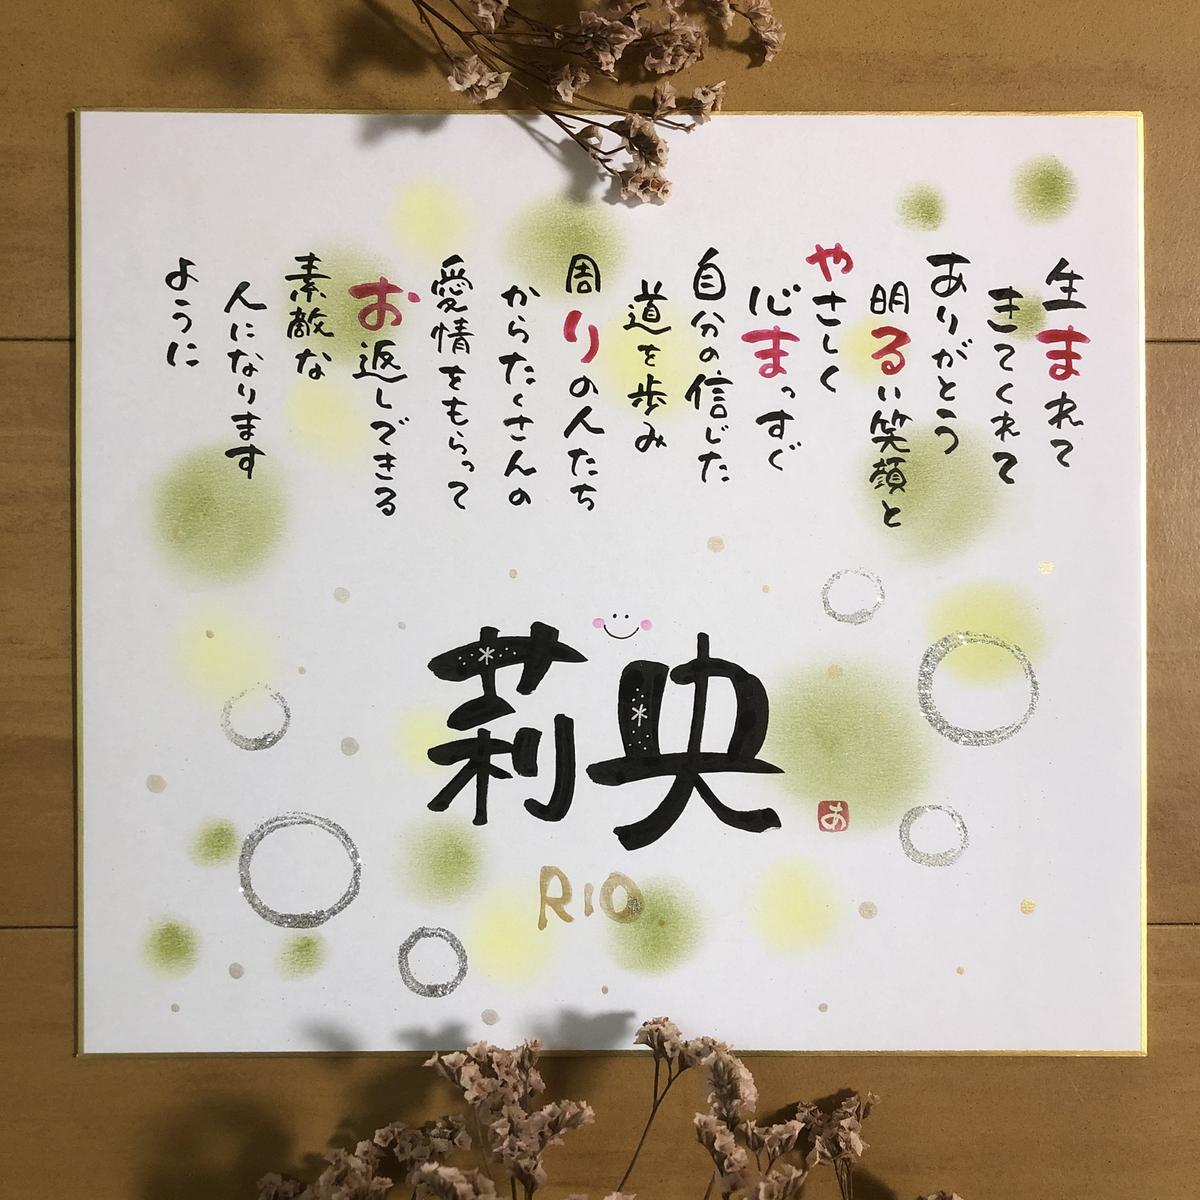 生まれて
きてくれて
ありがとう
明るい笑顔と
やさしく
心まっすぐ
自分の信じた
道を歩み
周りの人たち
からたくさんの
愛情をもらって
お返しできる
素敵な
人になります
ように
莉央
RIO
あ